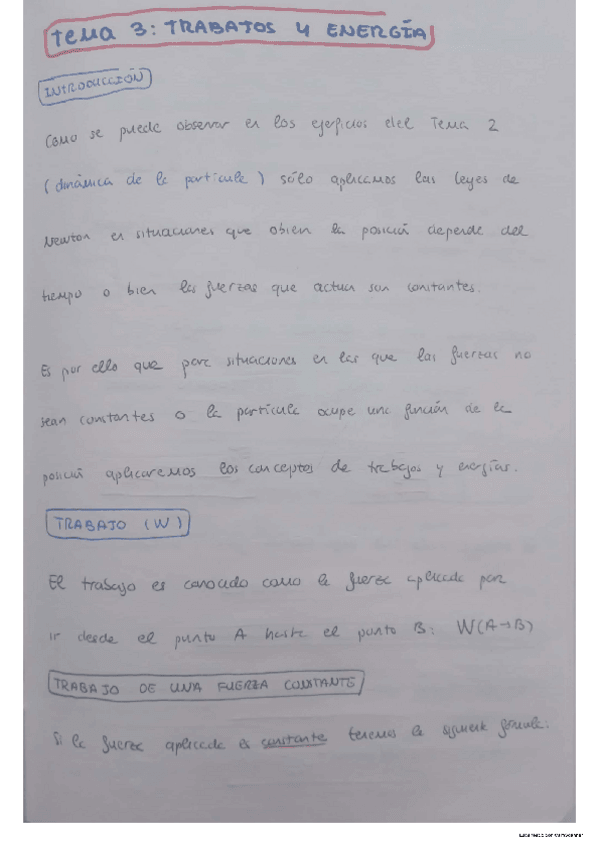 Tema 3: TRABAJOS Y ENERGÍA
INTRODUCCIÓN
Como se puede observar en los ejercicios del Tema 2
(dinámica de la partícula) sólo aplicamos las leyes de
Newton en situaciones que obien la posición depende del
tiempo o bien las fuerzas que actuan son constantes.
Es por ello que para situaciones en las que las fuerzas no
sean constantes o la partícula ocupe una función de la
posición aplicaremos los conceptos de trabajos y energías.
TRABAJO (W)
El trabajo es conocido como la fuerza aplicada por
ir desde el punto A hasta el punto B: W(A→B)
TRABAJO DE UNA FUERZA CONSTANTE
Si la fuerza aplicada es constante tenemos la siguiente fórmula: